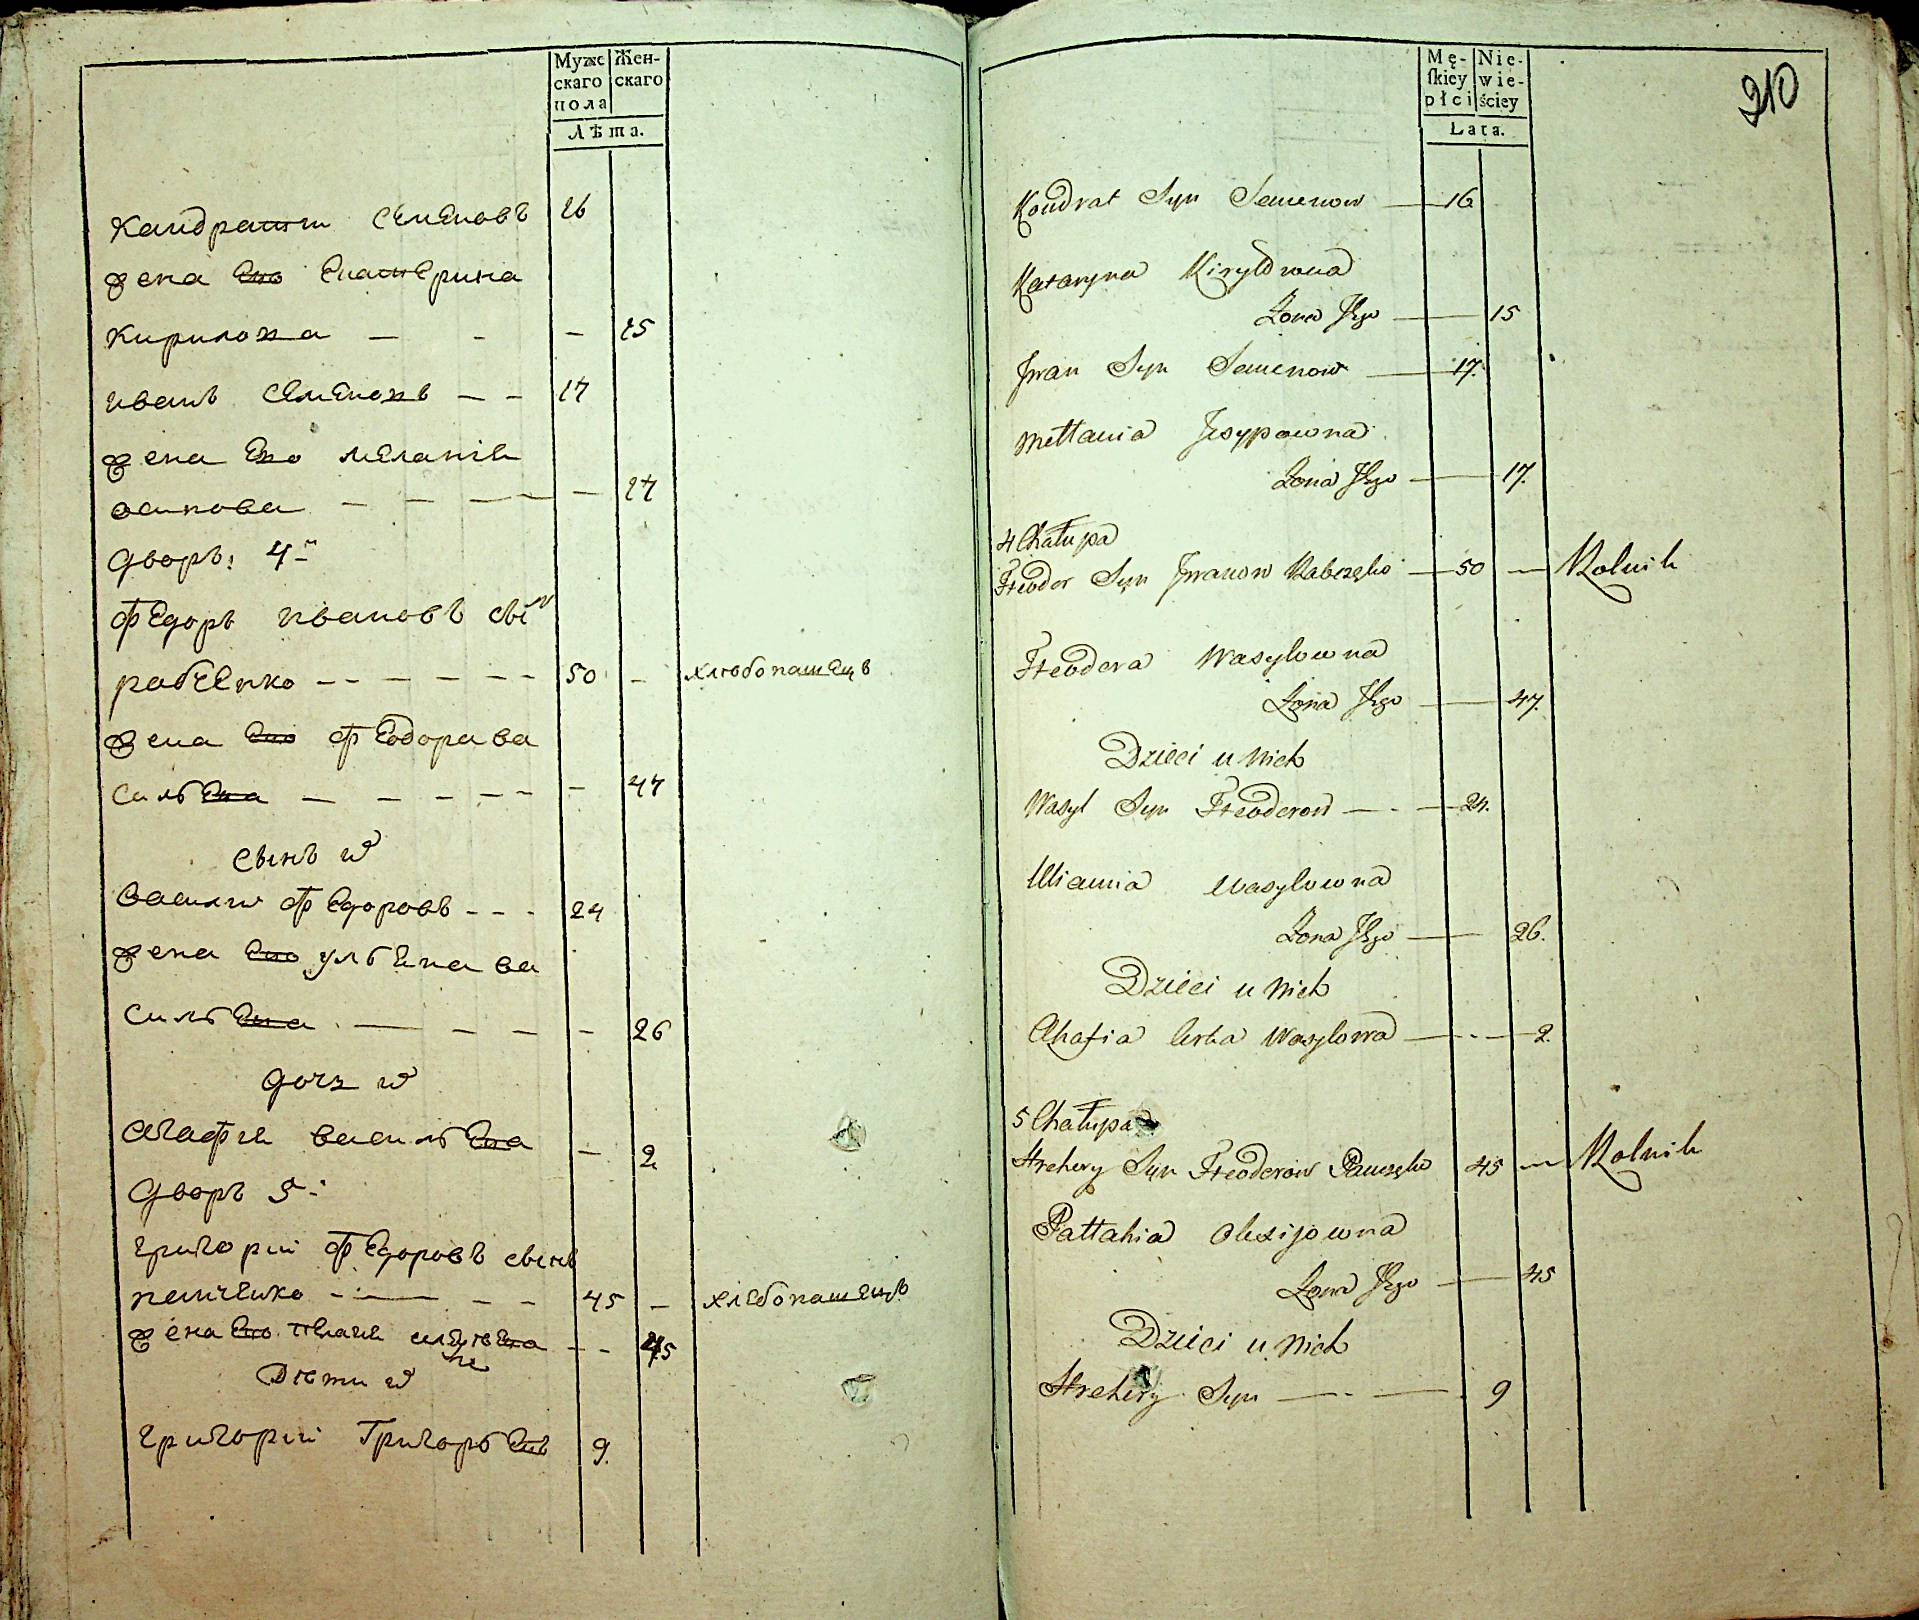 Муже
скаго
пола
Жен-
скаго
Лѣта.
Кандратъ Семеновъ 16
жена Его Екатерина
Кирилова — - — 15
иванъ Семеновъ — — 17
жена Его меланія
осипова — — — — — 17
дворъ: 4й
Федоръ ивановъ сынъ
рабченко - - - - - - 50 - хлѣбопашецъ
жена Его Феодора ва
сильева — — - - - - 47
сынъ ихъ
василій Федоровъ - - - 24
жена Его ульяна ва
сильева — — - - 26
дочь ихъ
агафія васильева — 2
дворъ 5й
григорій Федоровъ сынъ
панченко - — — - 45 — хлебопашецъ
жена Его Пелагея - - 45
Дѣти ихъ
григорій Григорьевъ 9.
Mę-
skiey
płci
Nie-
wie-
ściey
Lata.
210
Kondrat Syn Semenow — 16
Kataryna Kiryłowna
Żona Jego — 15
Jwan Syn Semenow — 17.
Mełłania Jesypowna
Żona Jego — 17.
4 Chałupa
Fteodor Syn Jwanow Rabczęko — 50 — Rolnik
Fteodera Wasylowna
Żona Jego — 47.
Dzieci u Nich
Wasyl Syn Fteoderow — - — 24.
Uliania Wasylowna
Żona Jego — 26.
Dzieci u Nich
Ahafia Corka Wasylowa — - — 2.
5 Chałupa
Hrehory Syn Fteoderow Panczęko 45 — Rolnik
Pałłahia Olexijowna
Żona Jego — 45
Dzieci u Nich
Hrehory Syn — - — 9